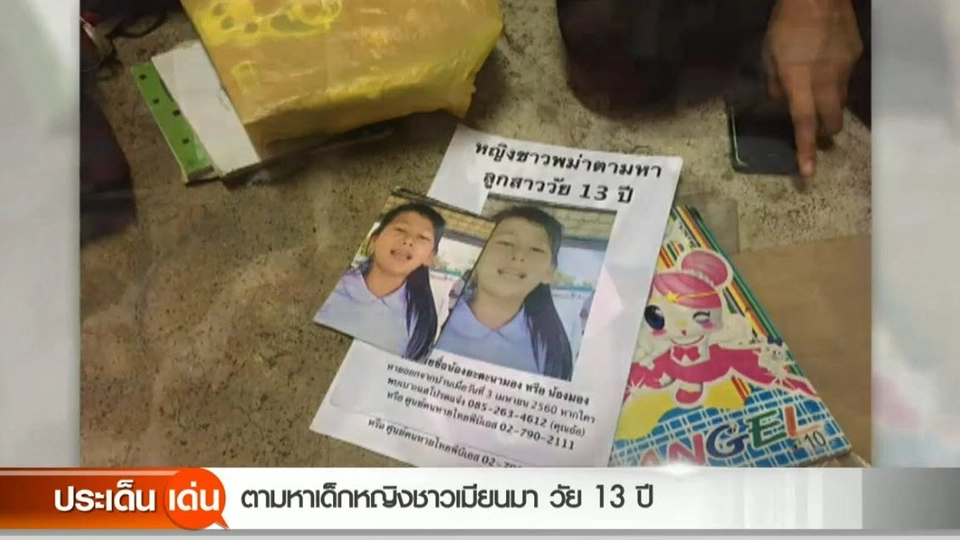 หญิงชาวพม่าตามหา
ลูกสาววัย 13 ปี
น้องยะตะนามอง หรือ น้องมอง
หายออกจากบ้านเมื่อวันที่ 3 เมษายน 2560 หากใคร
พบเบาะแสโปรดแจ้ง 085-263-4612
หรือ ศูนย์คนหายไทยพีบีเอส 02-790-2111
หรือ ศูนย์คนหายไทยพีบีเอส
ANGEL
ประเด็นเด่น ตามหาเด็กหญิงชาวเมียนมา วัย 13 ปี